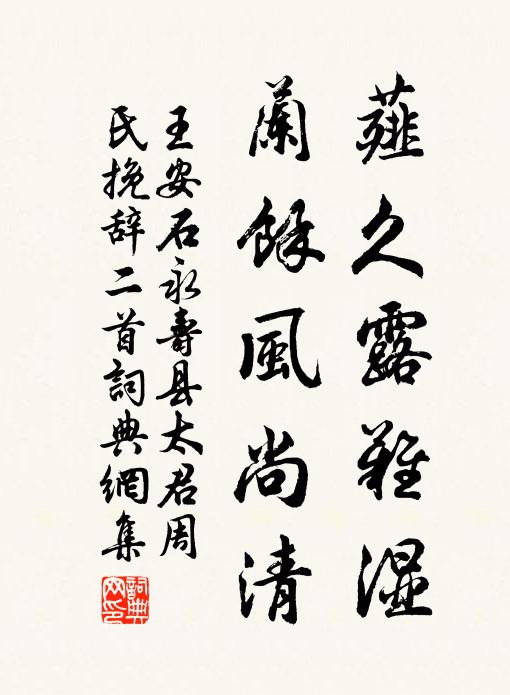 薤久露難湿
蘭餘風尚清
王安石永壽县太君周
氏挽辞二首詞典網集
詞典网印